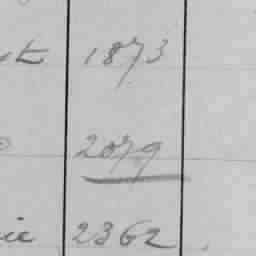 1873
2079
2362